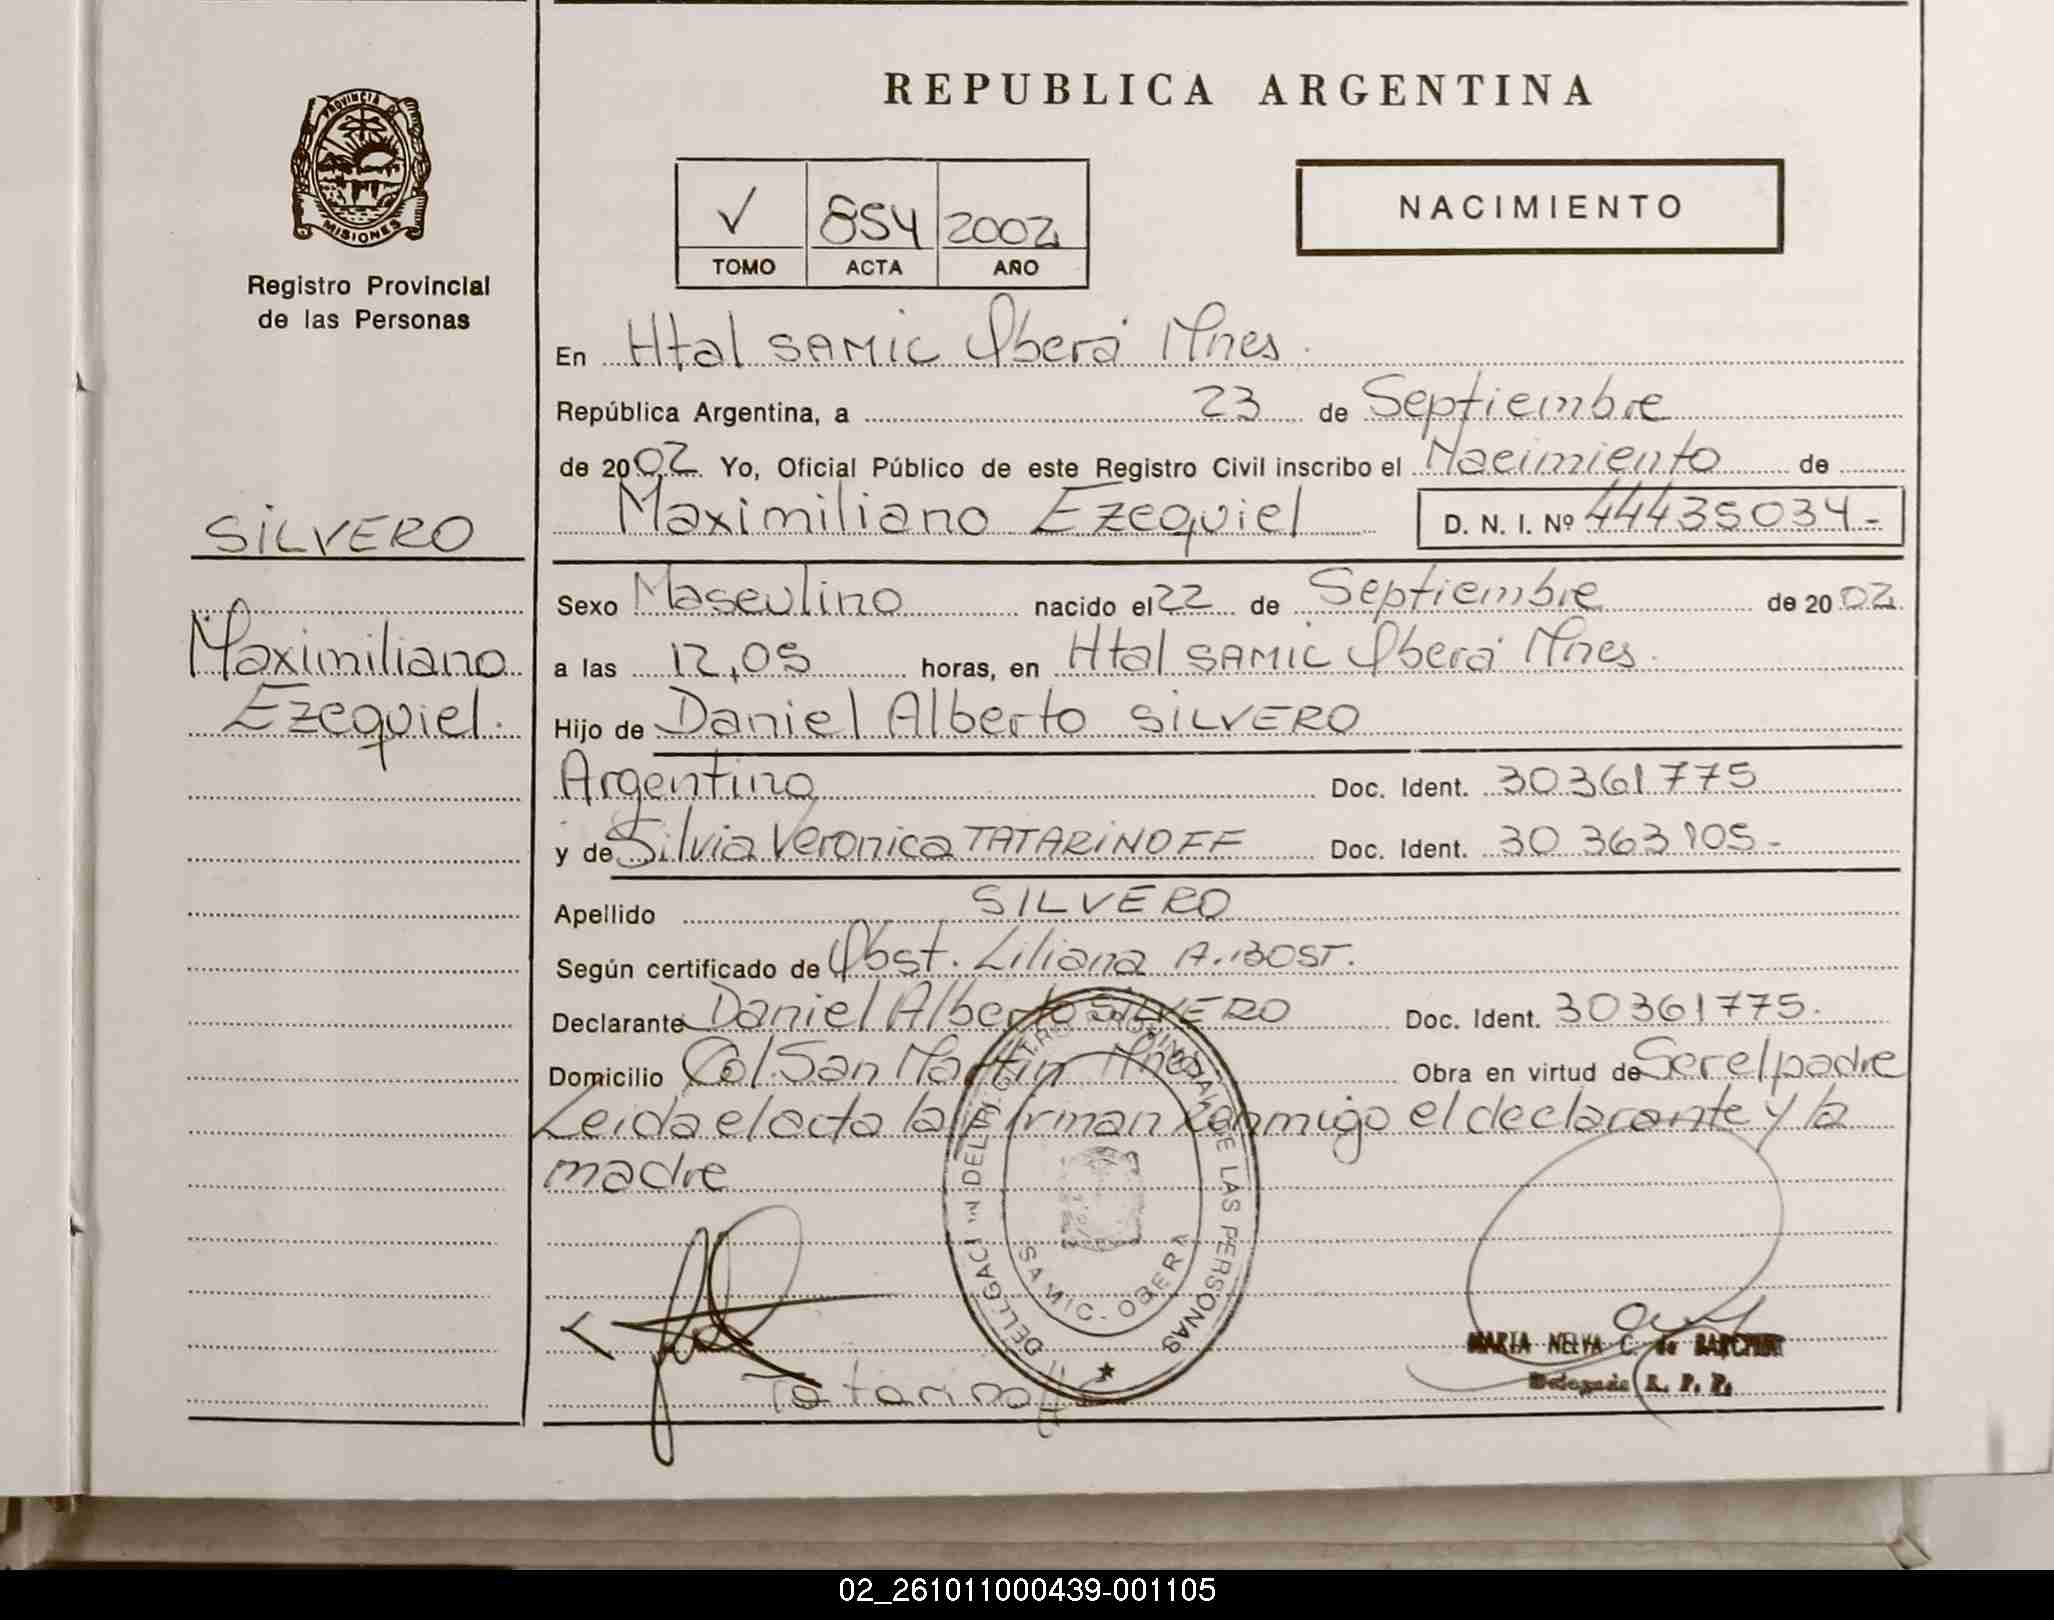 PROVINCIA DE
MISIONES
Registro Provincial
de las Personas
SILVERO
Maximiliano
Ezequiel.
REPUBLICA ARGENTINA
V 854 2002
TOMO ACTA AÑO
NACIMIENTO
En Htal SAMIC Oberá Mnes.
República Argentina, a 23 de Septiembre
de 2002 Yo, Oficial Público de este Registro Civil inscribo el Nacimiento de
Maximiliano Ezequiel D. N. I. Nº 44435034-
Sexo Masculino nacido el 22 de Septiembre de 2002
a las 12,05 horas, en Htal SAMIC Oberá Mnes.
Hijo de Daniel Alberto SILVERO
Argentino Doc. Ident. 30361775
y de Silvia Veronica TATARINOFF Doc. Ident. 30 363 105-
Apellido SILVERO
Según certificado de Obst. Liliana A. BOST.
Declarante Daniel Alberto SILVERO Doc. Ident. 30361775.
Domicilio Col. San Martin Mnes Obra en virtud de Ser el padre
Leida el acta la firman conmigo el declarante y la
madre
SAMIC - OBERA
DE LAS PERSONAS
Tatarinoff
MARIA NELVA C. de
Delegada R. P. P.
02_261011000439-001105